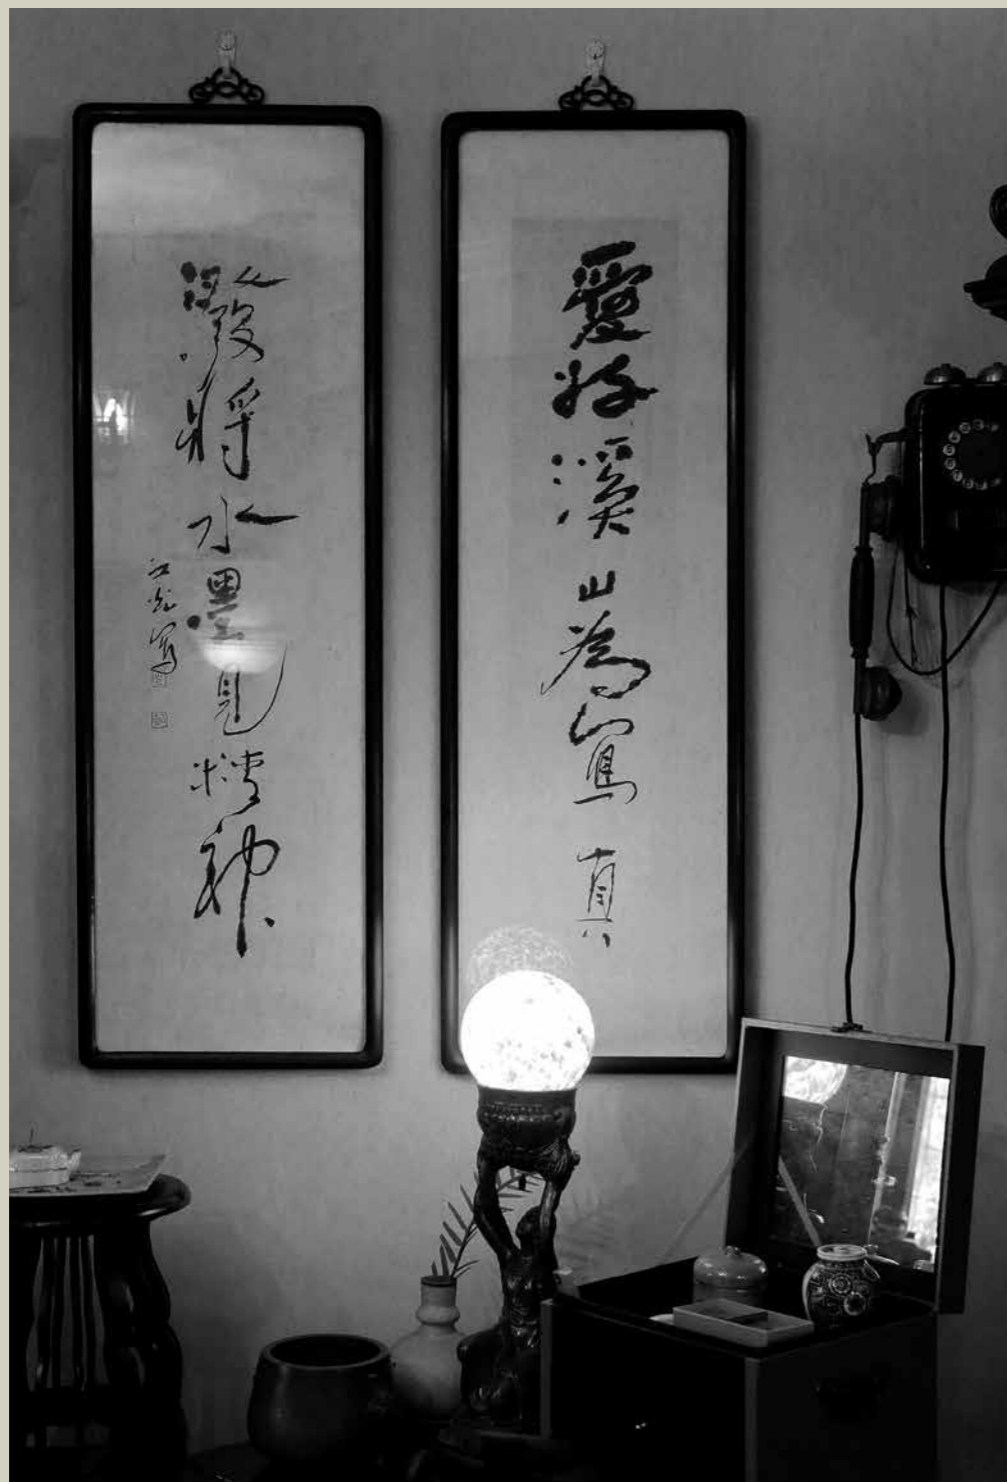 愛好溪山為寫真
潑將水墨見精神